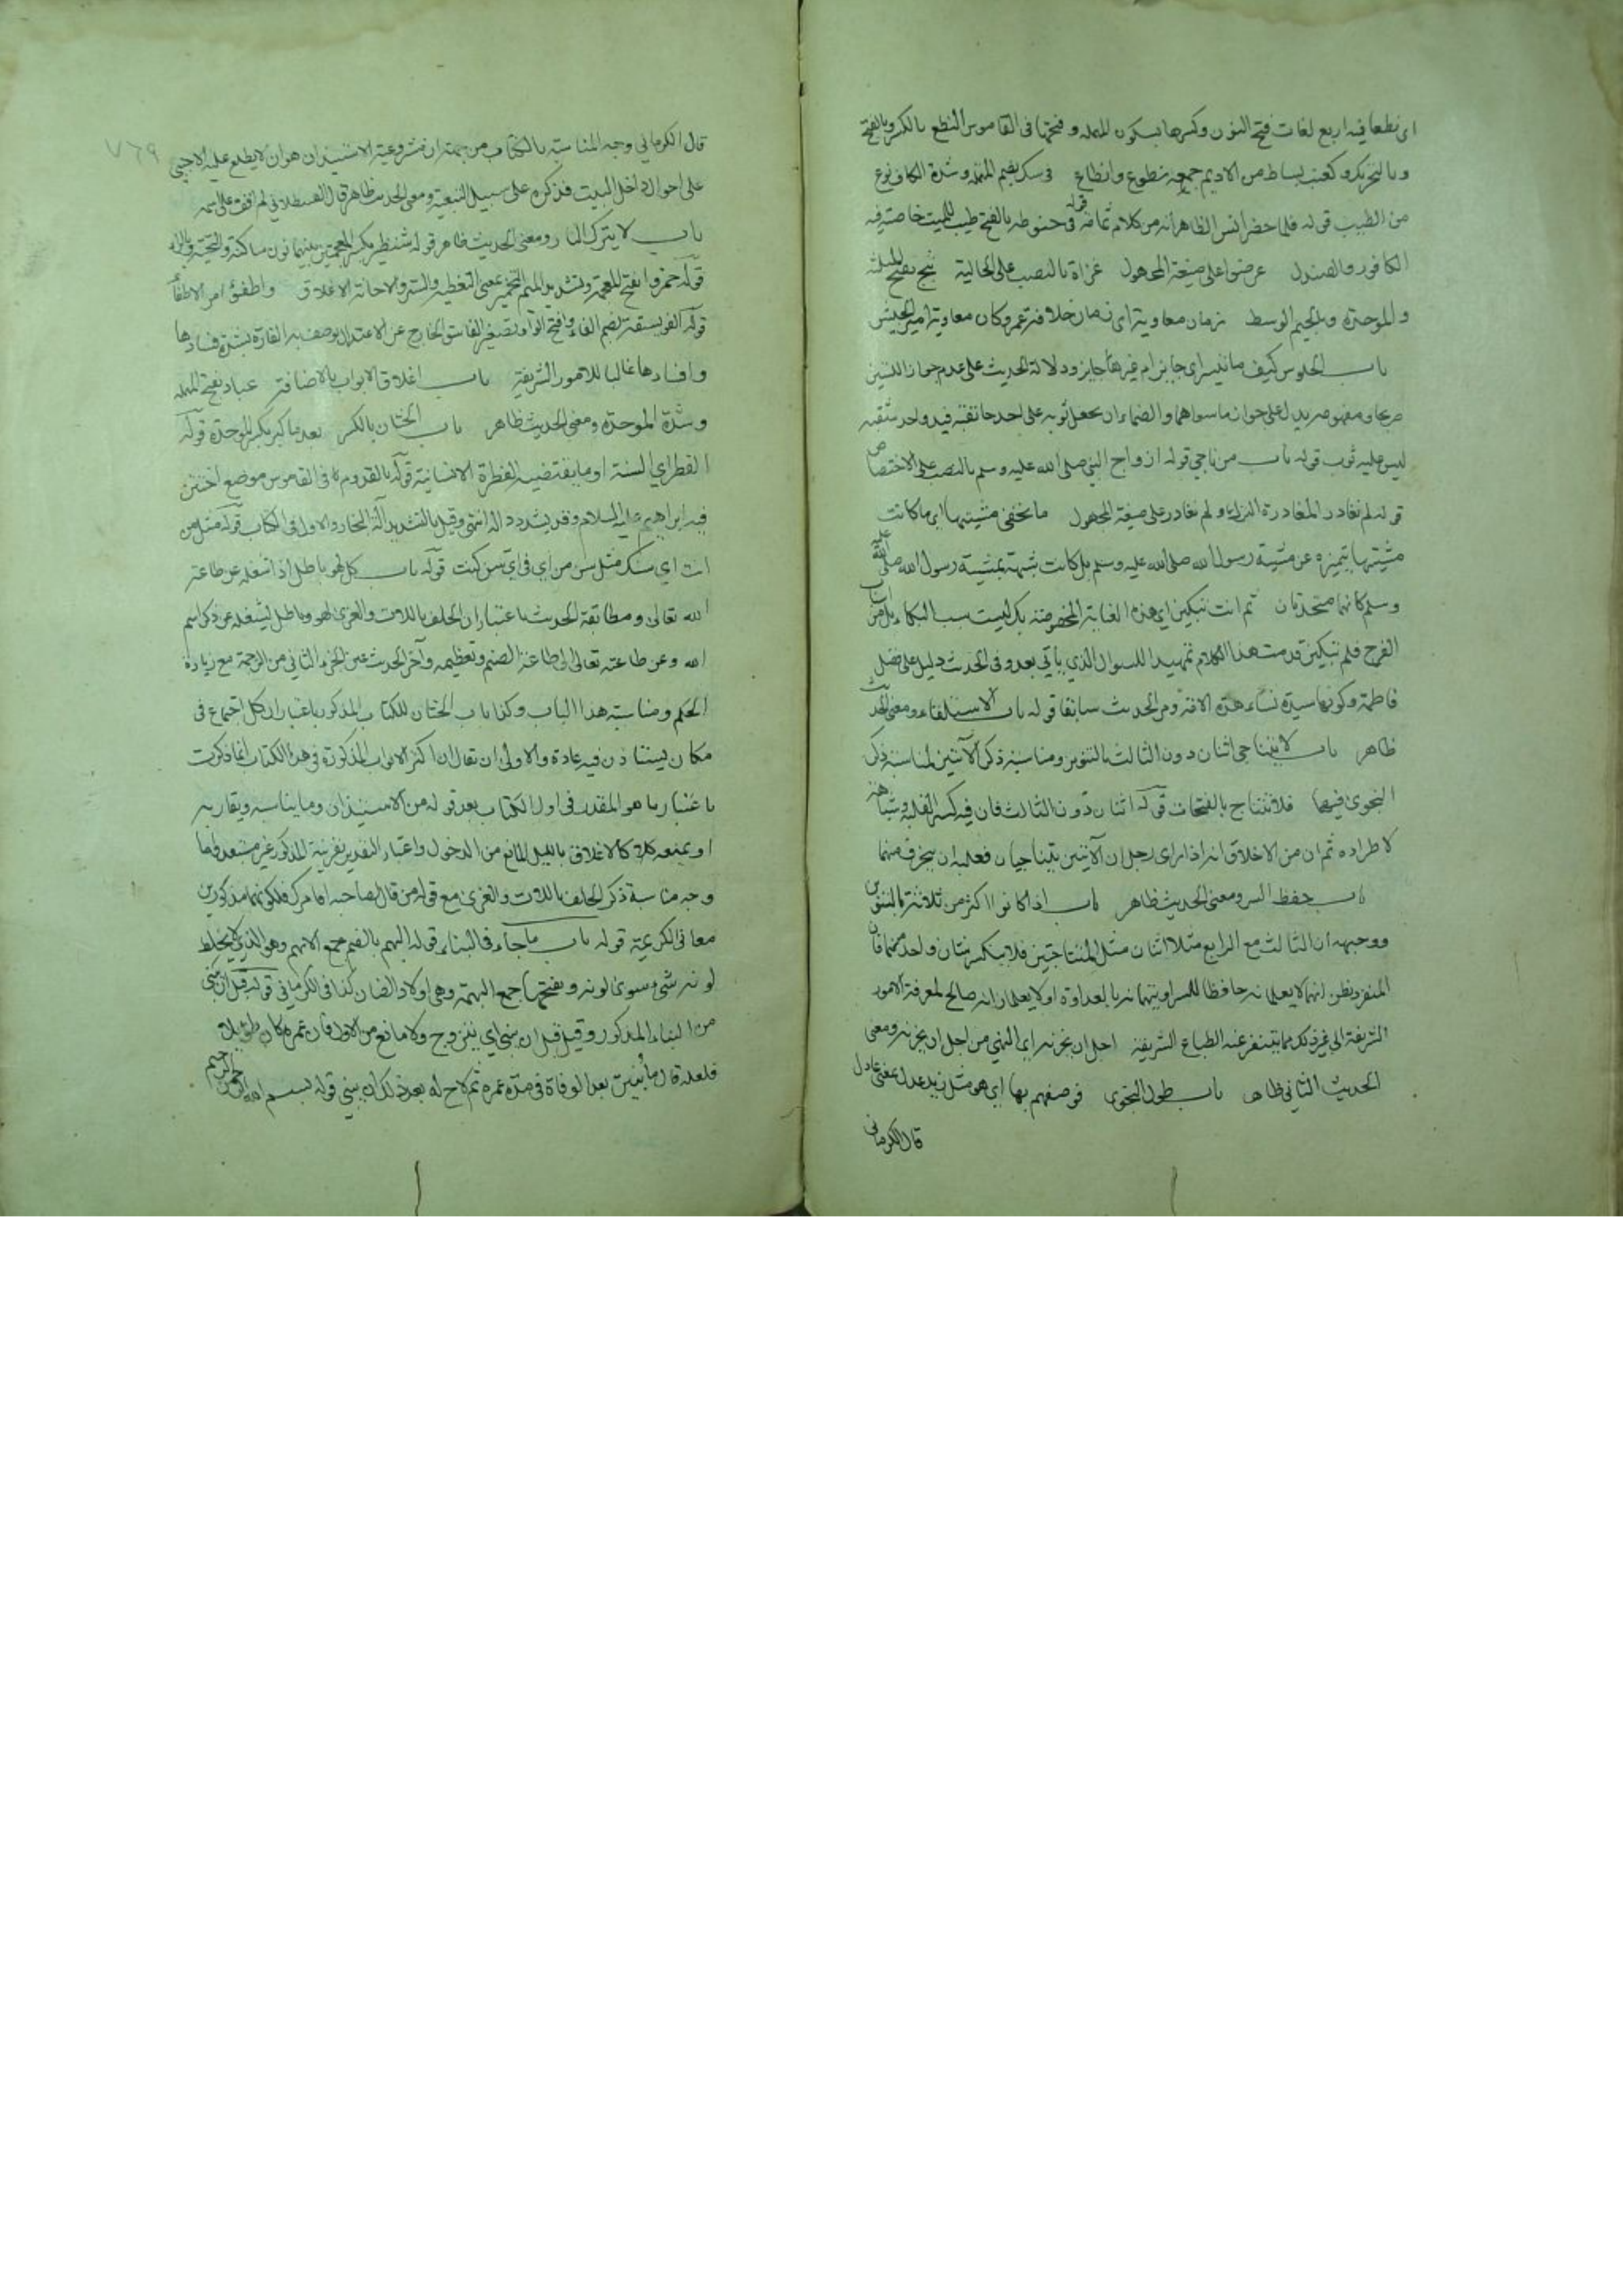 اى نطعا فيه اربع لغات فتح النون وكسرها بسكون المهملة وفتحها فى القاموس النطع بالكسر وبالفتح
وبالتحريك وكعنب بساط من الاديم جمعه نطوع وانطاع فى سك بضم المهملة وشدة الكاف نوع
من الطيب قوله فلما حضر انس الظاهر انه من كلام ثمامة قوله فى حنوطه بالفتح طيب للميت خاصة فيه
الكافور والصندل عرضوا على صيغة المجهول غزاة بالنصب على الحالية ثبج بفتح المثلثة
والموحدة وبالجيم الوسط زمان معاوية اى زمان خلافة عمر وكان معاوية امير الجيش
باب الجلوس كيف ما تيسر اى جايز ام غيرها جايز ودلالة الحديث على عدم جواز اللبستين
صريحا ومفهومه يدل على جواز ما سواهما والصماء ان يجعل ثوبه على احد عاتقيه فيبدو احد شقيه
ليس عليه ثوب قوله باب من ناجى قوله ازواج النبى صلى الله عليه وسلم بالنصب على الاختصاص
قوله لم تغادر المغادرة الترك ولم تغادر على صيغة المجهول ما تخفى مشيتها اى ما كانت
مشيتها متميزة عن مشية رسول الله صلى الله عليه وسلم بل كانت شبهة بمشية رسول الله صلى الله عليه
وسلم كانهما متحدتان ثم انت تبكين اى هذه الغاية المخصوصة بك ليست سبب البكاء بل من اسباب
الفرح فلم تبكين قدمت هذا الكلام تمهيدا للسوال الذي ياتى بعد وفى الحديث دليل على فضل
فاطمة وكونها سيدة نساء هذه الامة ومر الحديث سابقا قوله باب الاستلقاء ومعنى الحديث
ظاهر باب لا يتناجى اثنان دون الثالث بالتنوين ومناسبة ذكر الآيتين لمناسبة ذكر
النجوى فيهما فلا تتناج بالفتحات قوله اثنان دون الثالث فان فيه كسر القلب
لاطراده ثم ان من الاخلاق انه اذا راى رجل ان الآثنين يتناجيان فعليه ان ينحرف منهما
باب حفظ السر ومعنى الحديث ظاهر باب اذا كانوا اكثر من ثلاثة بالتنوين
ووجهه ان الثالث مع الرابع مثلا اثنان مثل المتناجيين فلا ينكسر شان واحد منهما فان
المنفرد يظن انهما لا يعلمانه حافظا للسر او يتهمانه بالعداوة او لا يعلمان انه صالح لمعرفة الامور
الشريفة الى غير ذلك مما يتنفر عنه الطباع الشريفة اجل ان يحزنه اى النهى من اجل ان يحزنه ومعنى
الحديث الثانى ظاهر باب طول النجوى فوصفهم بها اى هو مثل زيد عدل بمعنى عادل
قال الكرمانى
٧٦٩
قال الكرمانى وجه المناسبة بالكتاب من جهة ان مشروعية الاستيذان هو ان لا يطلع عليه الاجنبى
على احوال داخل البيت فذكره على سبيل التبعية ومعنى الحديث ظاهر قال القسطلانى لم اقف على اسمه
باب لا يترك النار ومعنى الحديث ظاهر قوله شنظير بكسر المعجمتين بينهما نون ساكنة والتحتية وبالراء
قوله خمروا بفتح المعجمة وتشديد الميم التخمير بمعنى التغطية والستر والاجافة الاغلاق واطفؤا امر الاطفاء
قوله الفويسقة بضم الفاء وفتح الواو تصغير الفاسق الخارج عن الاعتدال يوصف به الفارة لشدة فسادها
وافسادها غالبا للامور الشريفة باب اغلاق الابواب بالاضافة عباد بفتح المهملة
وشدة الموحدة ومعنى الحديث ظاهر باب الختان بالكسر بعد ما كبر بكسر الموحدة قوله
الفطر اى السنة او ما يقتضيه الفطرة الانسانية قوله بالقدوم فى القاموس موضع اختتن
فيه ابراهيم عليه السلام وقد يشدد داله انتهى وقيل بالتشديد آلة النجار والاول فى الكتاب قوله مثل من
انت اى سنك مثل سن من اى فى اى سن كنت قوله باب كل لهو باطل اذا شغله عن طاعة
الله تعالى ومطابقة الحديث باعتبار ان الحلف باللات والعزى لهو وباطل يشغله عن ذكر اسم
الله وعن طاعته تعالى الى طاعة الصنم وتعظيمه وآخر الحديث عين الجزء الثانى من الترجمة مع زيادة
الحكم ومناسبة هذا الباب وكذا باب الختان للكتاب المذكور باعتبار ان كل اجتماع فى
مكان يستاذن فيه عادة والاولى ان يقال ان اكثر الابواب المذكورة فى هذا الكتاب انما ذكرت
باعتبار ما هو المقدر فى اول الكتاب بعد قوله من الاستيذان وما يناسبه ويقاربه
او يمنعه كلا كالاغلاق بالليل المانع من الدخول واعتبار التقدير بقرينة المذكور غير مستبعد فاما
وجه مناسبة ذكر الحلف باللات والعزى مع قوله من قال لصاحبه اقامرك فلكونهما مذكورين
معا فى الكريمة قوله باب ما جاء فى البناء قوله البهم بالضم جمع الابهم وهو الذى لا يخلط
لونه شئ سوى لونه وبفتحها جمع البهمة وهى اولاد الضان كذا فى الكرمانى قوله قبل ان يبنى
من البناء المذكور وقيل قبل ان يبنى اى يتزوج ولا مانع من الاول فان عمره كان طويلا
فلعله قال ما بنيت بعد الوفاة فى مدة عمره ثم لاح له بعد ذلك ان يبنى قوله بسم الله الرحمن الرحيم